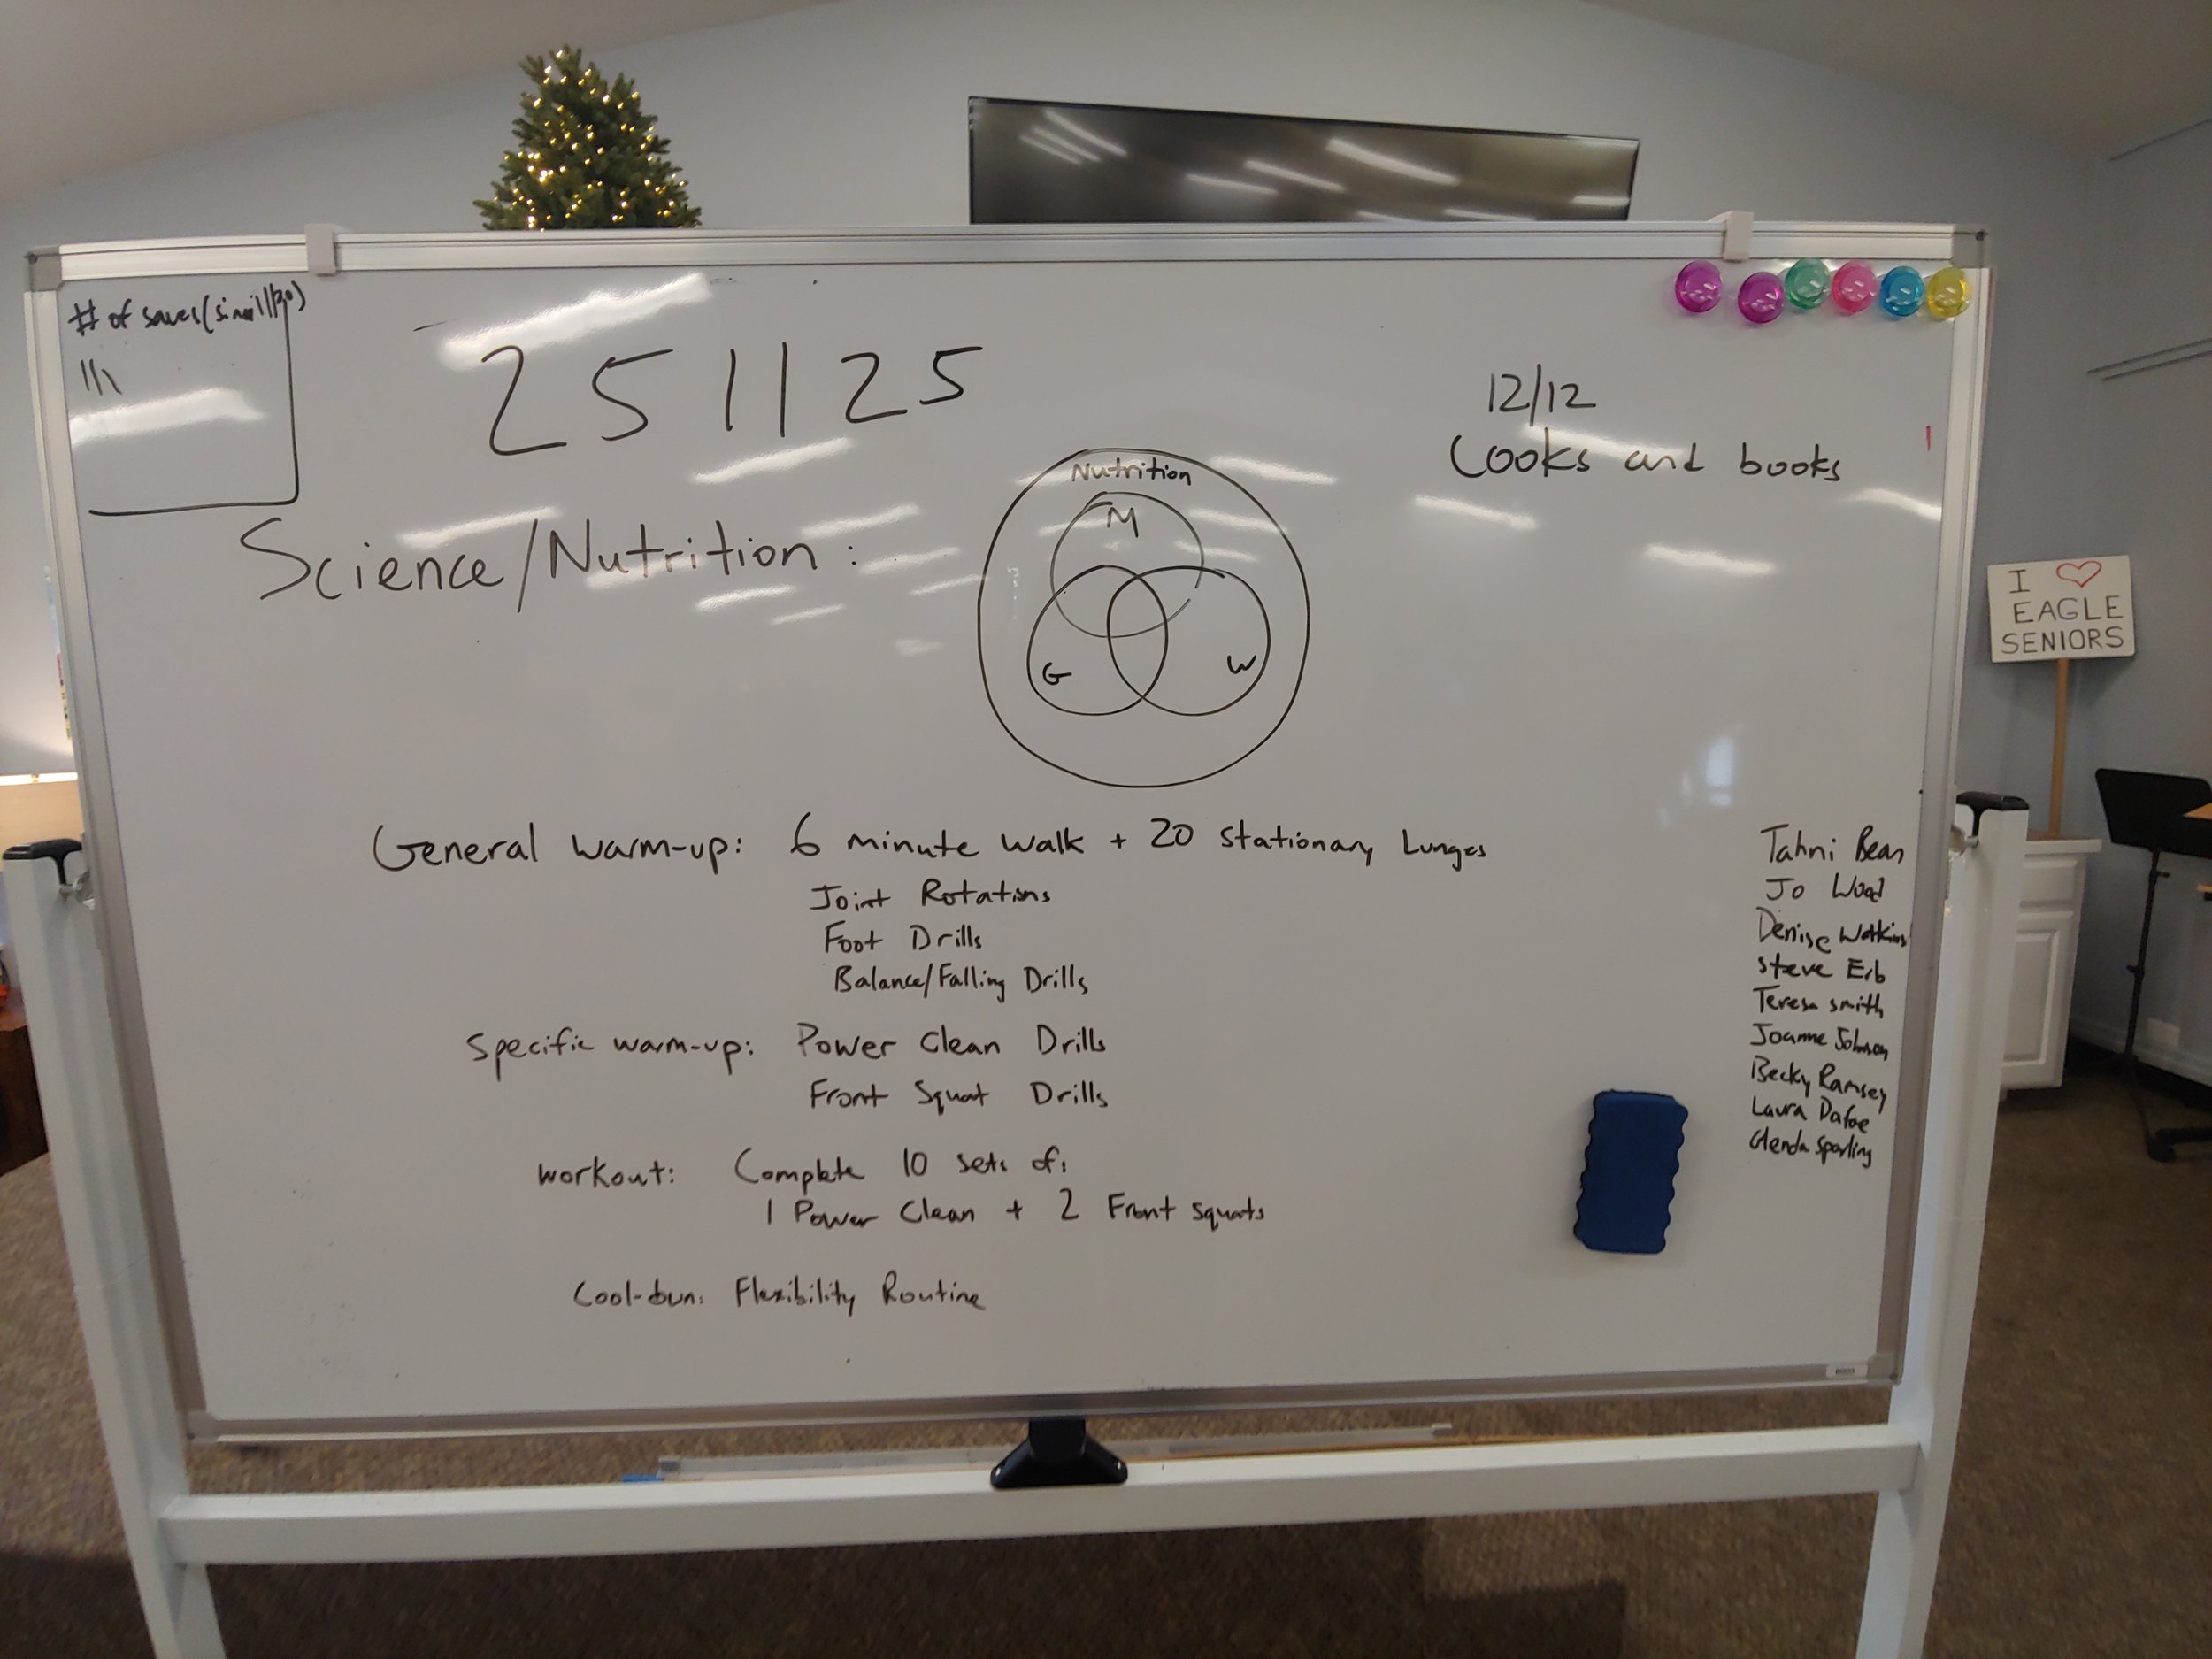 # of saves (since 11/20)
|||
251125
12/12
Cooks and books
Science/Nutrition:
Nutrition
M
G
W
I ♡
EAGLE
SENIORS
General warm-up: 6 minute walk + 20 stationary Lunges
Joint Rotations
Foot Drills
Balance/Falling Drills
Specific warm-up: Power Clean Drills
Front Squat Drills
Workout: Complete 10 sets of:
1 Power Clean + 2 Front squats
Cool-down: Flexibility Routine
Tahni Bean
Jo Wood
Denise Watkins
Steve Erb
Teresa smith
Joanne Johnson
Becky Ramsey
Laura Dafoe
Glenda Sparling